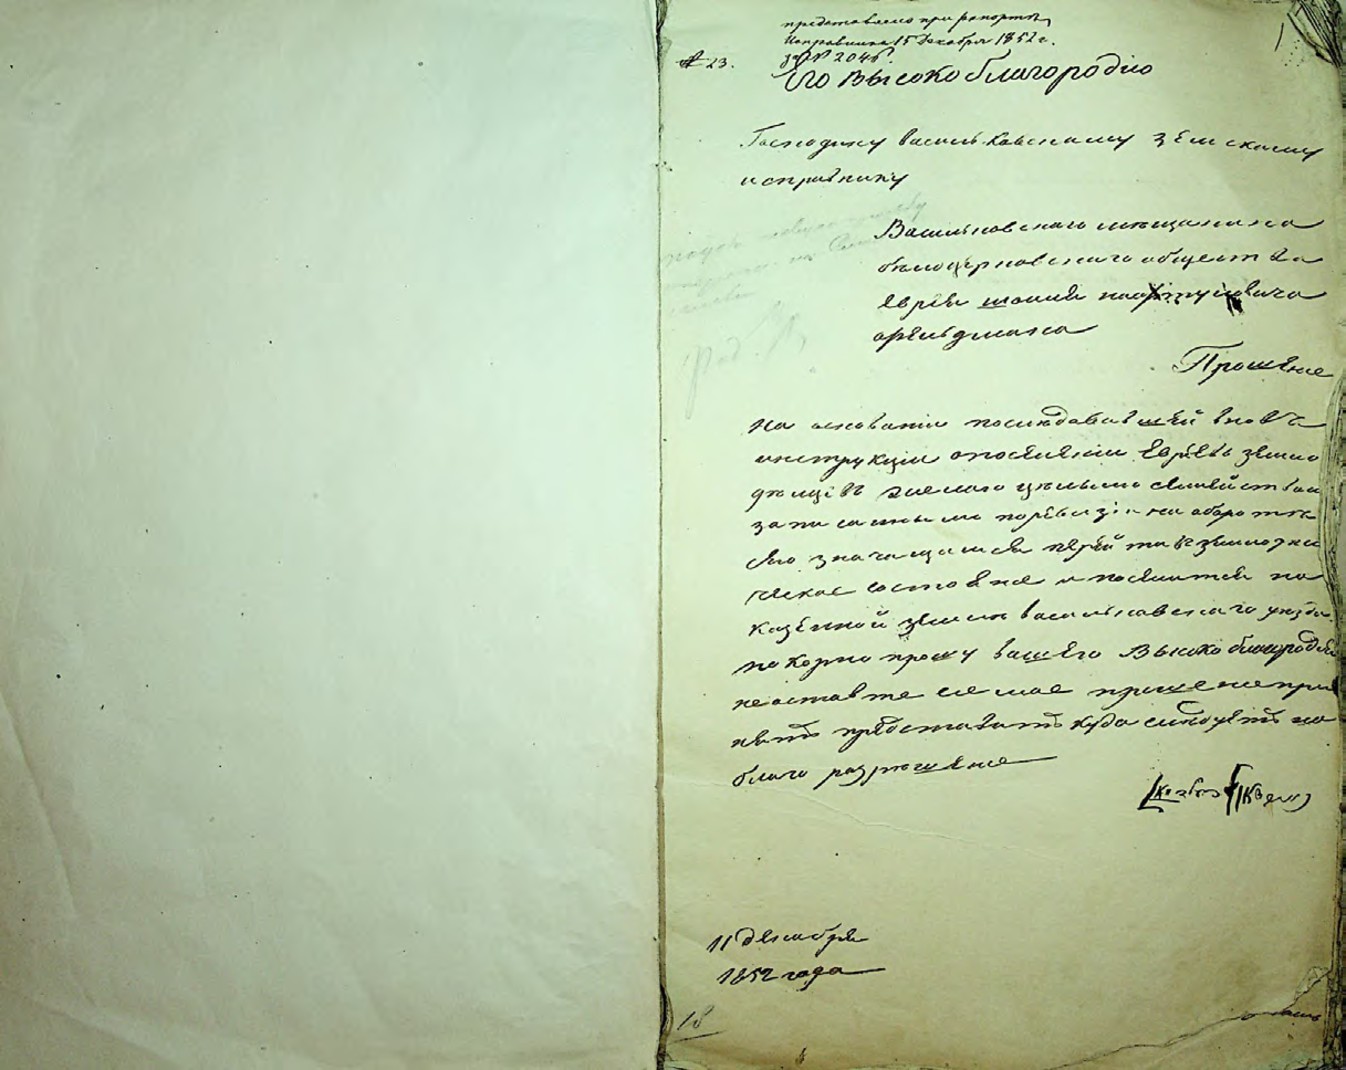 представлено при рапортѣ
Исправника 15 Декабря 1852 г.
за № 2046.
№ 23.
Его Высокоблагородію
Господину васильковскому земскому
исправнику
Васильковскаго мещанина
бѣлоцерковскаго общества
еврея
Прошение
на основаніи последовавшей вновь
инструкціи опоселеніи Евреевъ земле
дельцевъ желаю целымъ семействам
записанным поревизіи на обороте
сего значащимся перейти въ земледел
ческое состояние и поселится на
казенной земли васильковскаго уезда
покорно прошу вашего Высокоблагородия
неоставте сие мое прошение при
нять представить куда следуетъ на
благо разрешение
11 декабря
1852 года
18